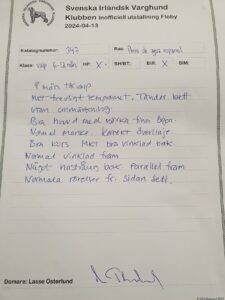 Svenska Irländsk Varghund
Klubben Inofficiell utställning Floby
2024-04-13
Katalognummer: 347
Ras: Perro de agua español
Klass: valp 4-6 mån
HP: X
BH/BT:
BIR: X
BIM:
mån
Met trevligt temperament. Tänder bett
utan anmärkning.
Bra huvud med mörka fina ögon.
Normal manke. Korrekt överlinje.
Bra kors Mkt bra vinklad bak
Normal vinklad fram
Något hastrång bak Parallell fram
Normala rörelser fr. Sidan sett.
Domare: Lasse Österlund